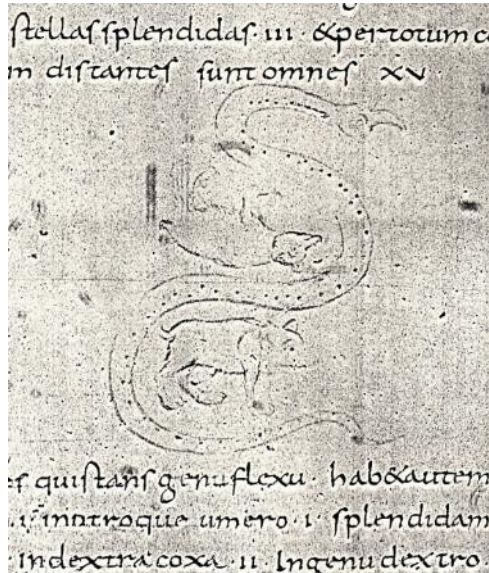 stellas splendidas · iii · & per totum co
in distantes sunt omnes xv
es qui stans genu flexu · hab& autem
· i · in utroque umero · i · splendidam
· In dextra coxa · ii · In genu dextro